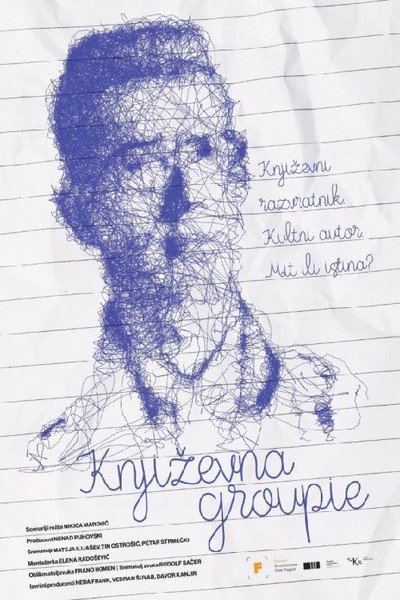 Književni
razvratnik.
Kultni autor.
Mit ili istina?
Književna
groupie
Scenarij i režija NIKICA
Producent NENAD PUHOVSKI
Snimatelji MATEJA TIN OSTROŠIĆ, PETAR STRMEČKI
Montažerka ELENA RADOŠEVIĆ
Oblikovatelj zvuka FRANO HOMEN | Snimatelj zvuka RUDOLF SAČER
Izvršni producenti NEDA FRANK, VEDRAN ŠUVAR, DAVOR KANJIR
F